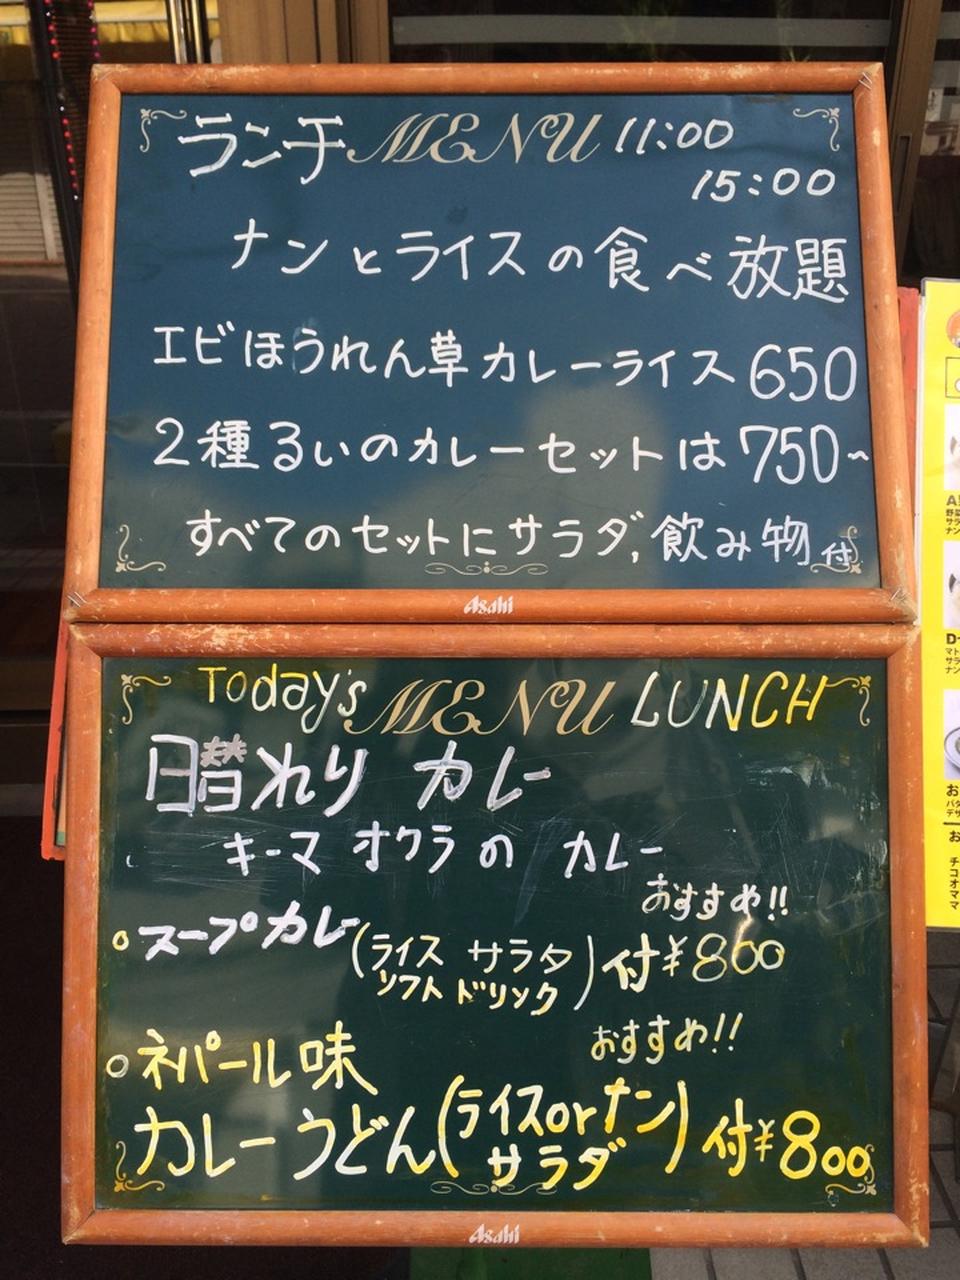 ランチ MENU 11:00
15:00
ナンとライスの食べ放題
エビほうれん草カレーライス 650
2種るいのカレーセットは750~
すべてのセットにサラダ,飲み物付
Asahi
Today's MENU LUNCH
日替れり カレー
キーマ オクラの カレー
おすすめ!!
○スープカレー(ライス サラタ
ソフト ドリンク)付¥800
おすすめ!!
○ネパール味
カレーうどん(ライスorナン
サラダ)付¥800
Asahi